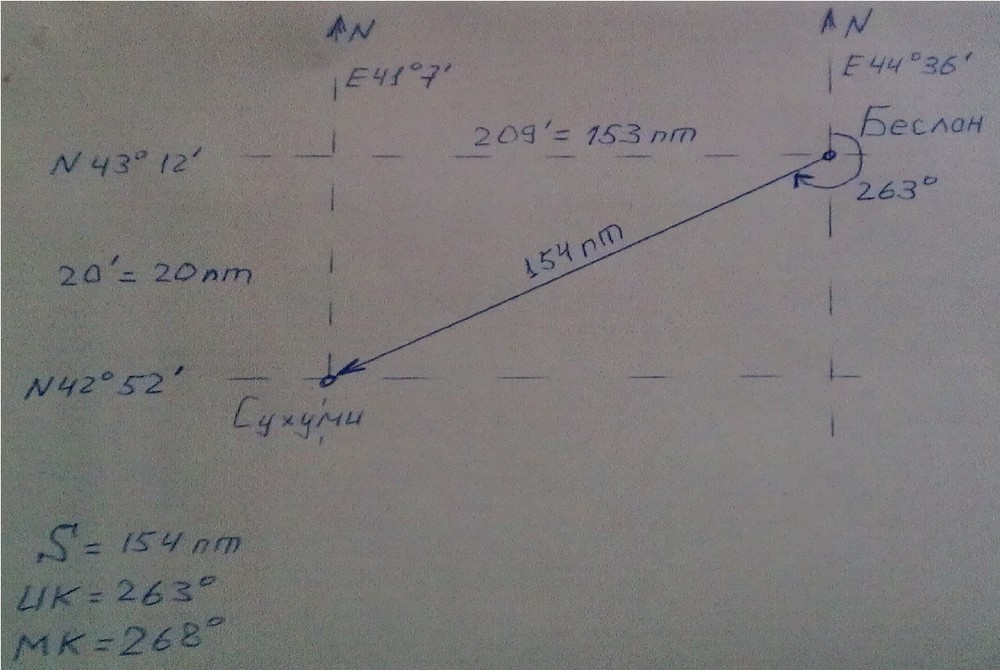 N N
E41°7' E44°36'
Беслан
209'= 153 nm
N 43° 12'
263°
154 nm
20'= 20 nm
N42°52'
Сухуми
S = 154 nm
ИК = 263°
МК = 268°